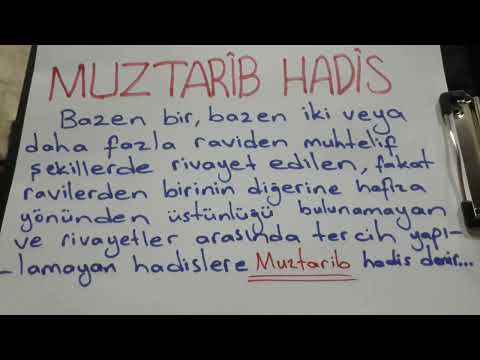 MUZTARİB HADİS
Bazen bir, bazen iki veya
daha fazla raviden muhtelif
şekillerde rivayet edilen, fakat
ravilerden birinin diğerine hafıza
yönünden üstünlüğü bulunamayan
ve rivayetler arasında tercih yapı-
-lamayan hadislere Muztarib hadis denir...